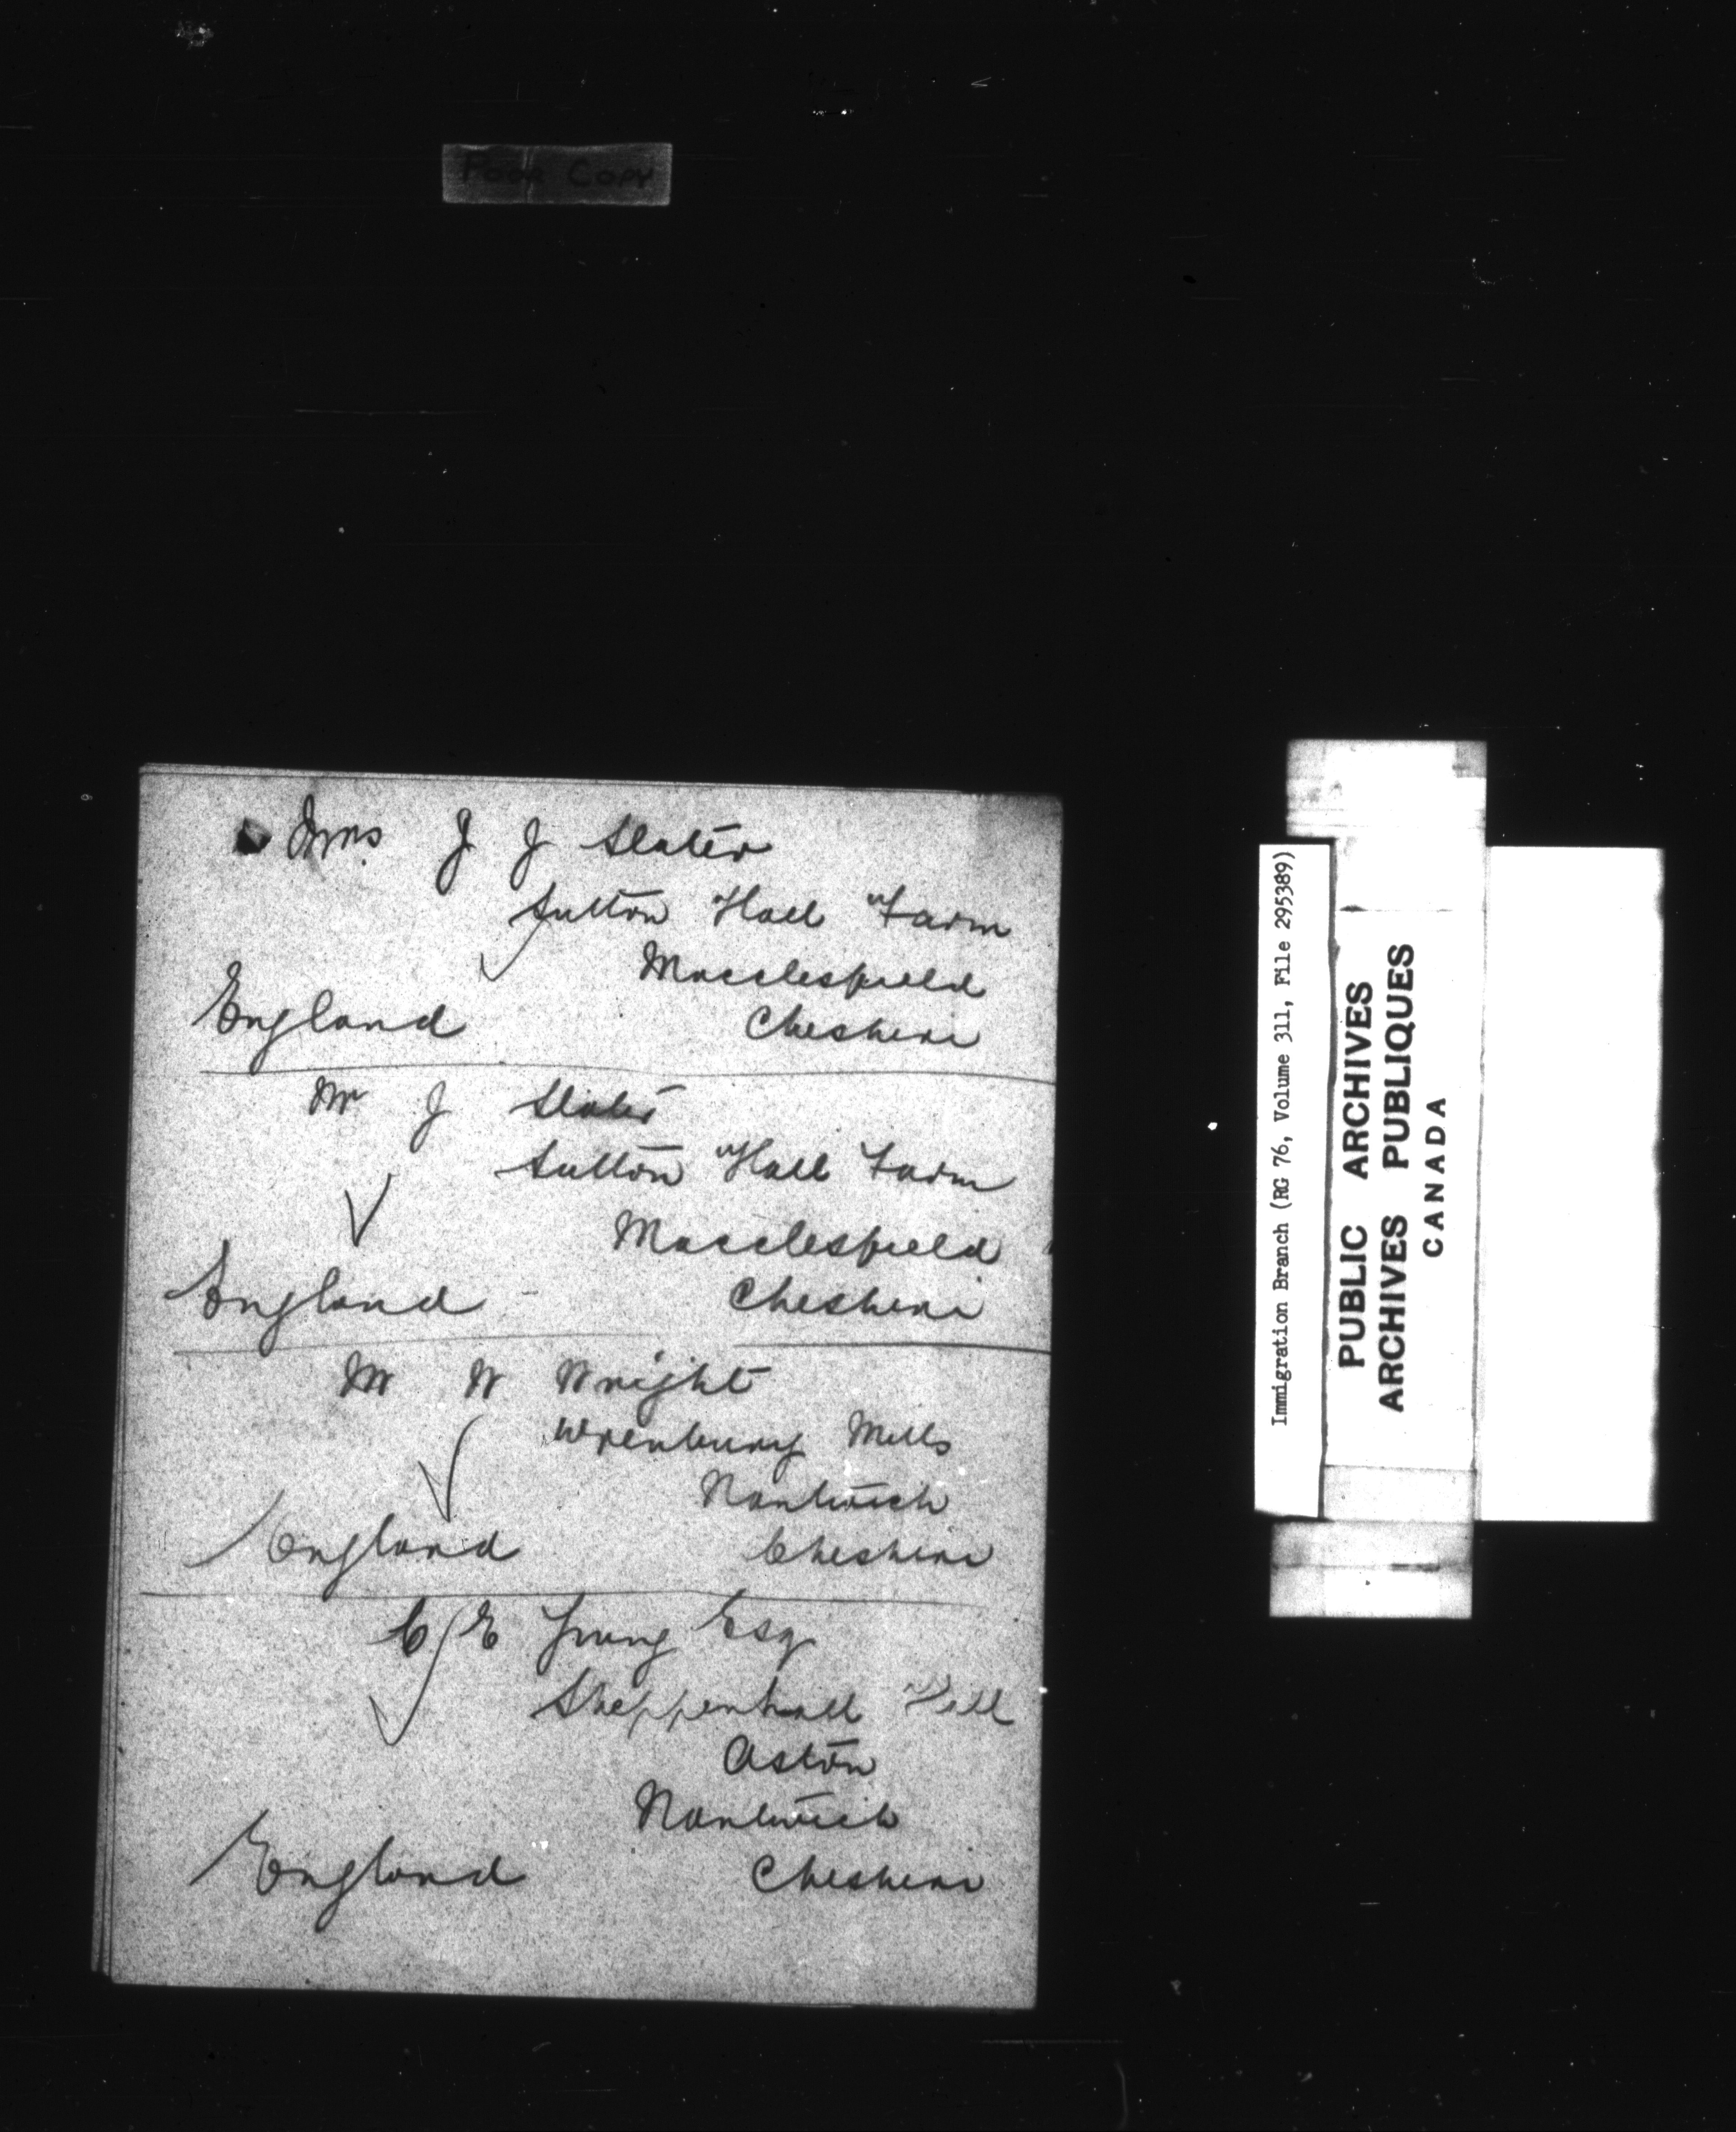 Poor Copy
Mrs J J Slater
Sutton Hall Farm
Macclesfield
England Cheshire
Mr J Slater
Sutton Hall Farm
Macclesfield
England Cheshire
Mr W Wright
Wrenbury Mills
Nantwich
England Cheshire
C E Young Esq
Sheppenhall
Aston
Nantwich
England Cheshire
Immigration Branch (RG 76, Volume 311, File 295389)
PUBLIC ARCHIVES
ARCHIVES PUBLIQUES
CANADA